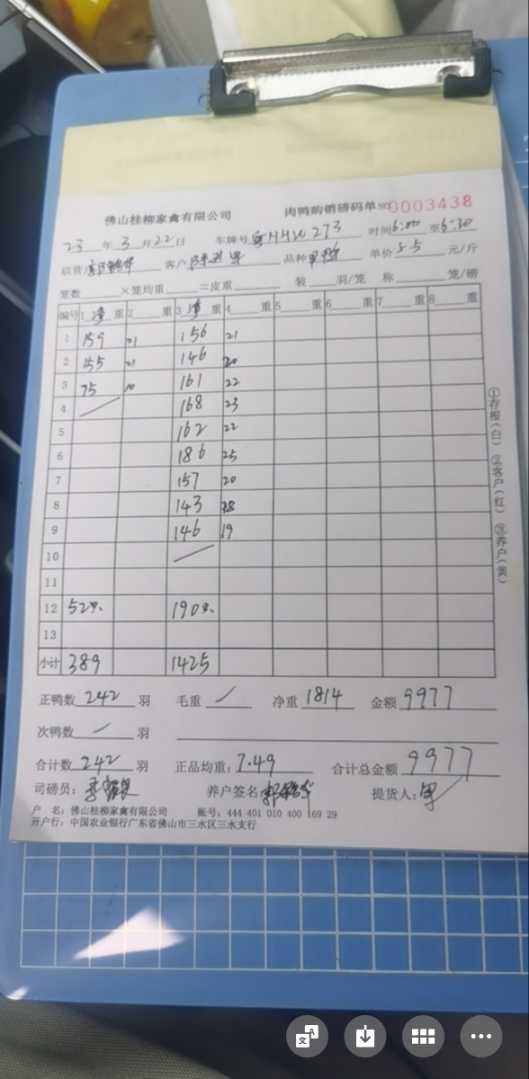 佛山桂柳家禽有限公司 肉鸭购销磅码单 NO 0003438
23年3月22日 车牌号 HHW273 时间6:00至6:30
联营 客户 品种 单价5.5元/斤
笼数 ×笼均重 =皮重 装 羽/笼 称 笼/磅
编号 1 重 2 重 3 重 4 重 5 重 6 重 7 重 8 重
1 159 21 156 21
2 155 21 146 20
3 75 10 161 22
4 168 23
5 162 22
6 186 25
7 157 20
8 143 18
9 146 19
10
11
12 52 190
13
小计 389 1425
正鸭数 242 羽 毛重 / 净重 1814 金额 9977
次鸭数 羽
合计数 242 羽 正品均重: 7.49 合计总金额 9977
司磅员: 养户签名 提货人:
户 名: 佛山桂柳家禽有限公司 账号: 444 401 010 400 169 29
开户行: 中国农业银行广东省佛山市三水区三水支行
①存根(白) ②客户(红) ③养户(黄)